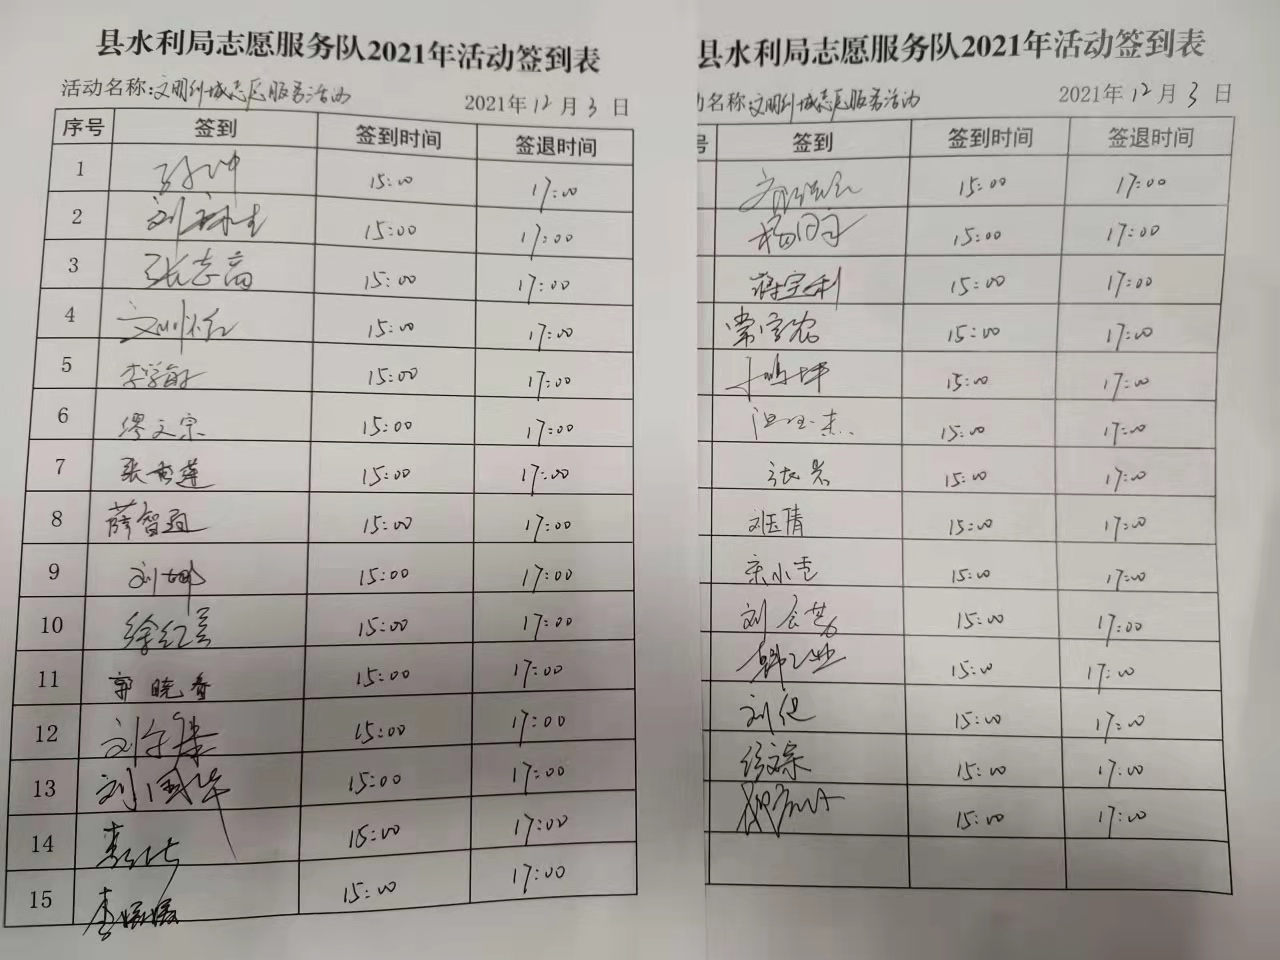 县水利局志愿服务队2021年活动签到表
活动名称:文明创城志愿服务活动
2021年12月3日
序号 签到 签到时间 签退时间
1 15:00 17:00
2 刘 15:00 17:00
3 张志高 15:00 17:00
4 15:00 17:00
5 李学敏 15:00 17:00
6 缪文宗 15:00 17:00
7 张秀莲 15:00 17:00
8 薛智 15:00 17:00
9 刘娜 15:00 17:00
10 徐红 15:00 17:00
11 郭晓春 15:00 17:00
12 刘 15:00 17:00
13 刘国华 15:00 17:00
14 15:00 17:00
15 李媛媛 15:00 17:00
县水利局志愿服务队2021年活动签到表
名称:文明创城志愿服务活动
2021年12月3日
号 签到 签到时间 签退时间
15:00 17:00
杨 15:00 17:00
蒋宝利 15:00 17:00
常 15:00 17:00
15:00 17:00
15:00 17:00
张 15:00 17:00
刘玉倩 15:00 17:00
宋小 15:00 17:00
刘 15:00 17:00
韩 15:00 17:00
刘 15:00 17:00
徐文宗 15:00 17:00
15:00 17:00